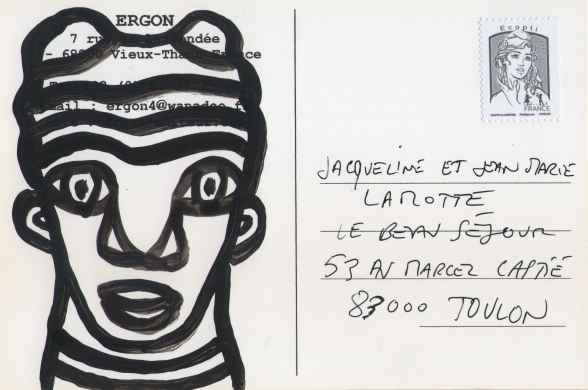 ERGON
7 ndée
Vieux-Tha France
ergon4@wanadoo.f
Ecopli
FRANCE
JACQUELINE ET JEAN MARIE
LAMOTTE
LE BEAU SÉJOUR
53 AV MARCEL CASTIÉ
83000 TOULON